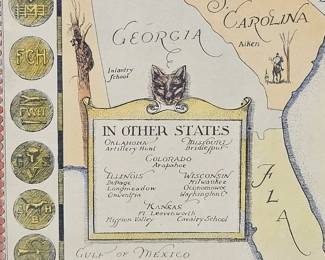 S. CAROLINA
GEORGIA
Aiken
Infantry
School
IN OTHER STATES
OKLAHOMA
Artillery Hunt
MISSOURI
Bridlespur
COLORADO
Arapahoe
ILLINOIS
DuPage
Longmeadow
Onwentsia
WISCONSIN
Milwaukee
Oconomowoc
Washington Co
KANSAS
Ft. Leavenworth
Mission Valley
Cavalry School
FLA
GULF OF MEXICO
FCH